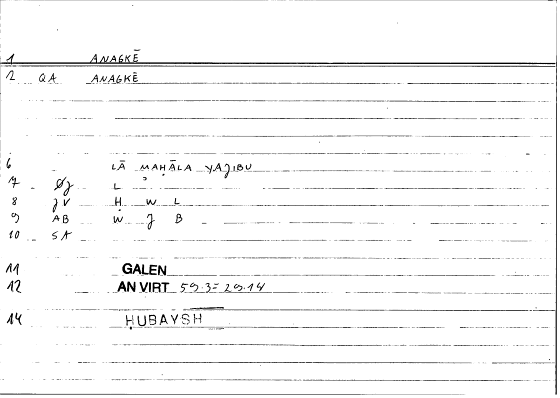 1 ANAGKĒ
2 QA ANAGKĒ
6 LĀ MAḤĀLA YAJIBU
7 ØJ L
8 JV Ḥ W L
9 AB W J B
10 SA
11 GALEN
12 AN VIRT 59.3 = 29.14
14 ḤUBAYSH